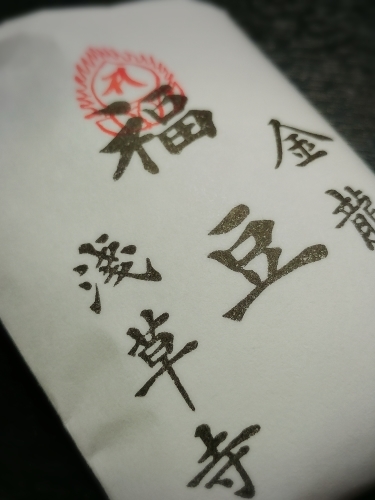 金龍
福豆
浅草寺